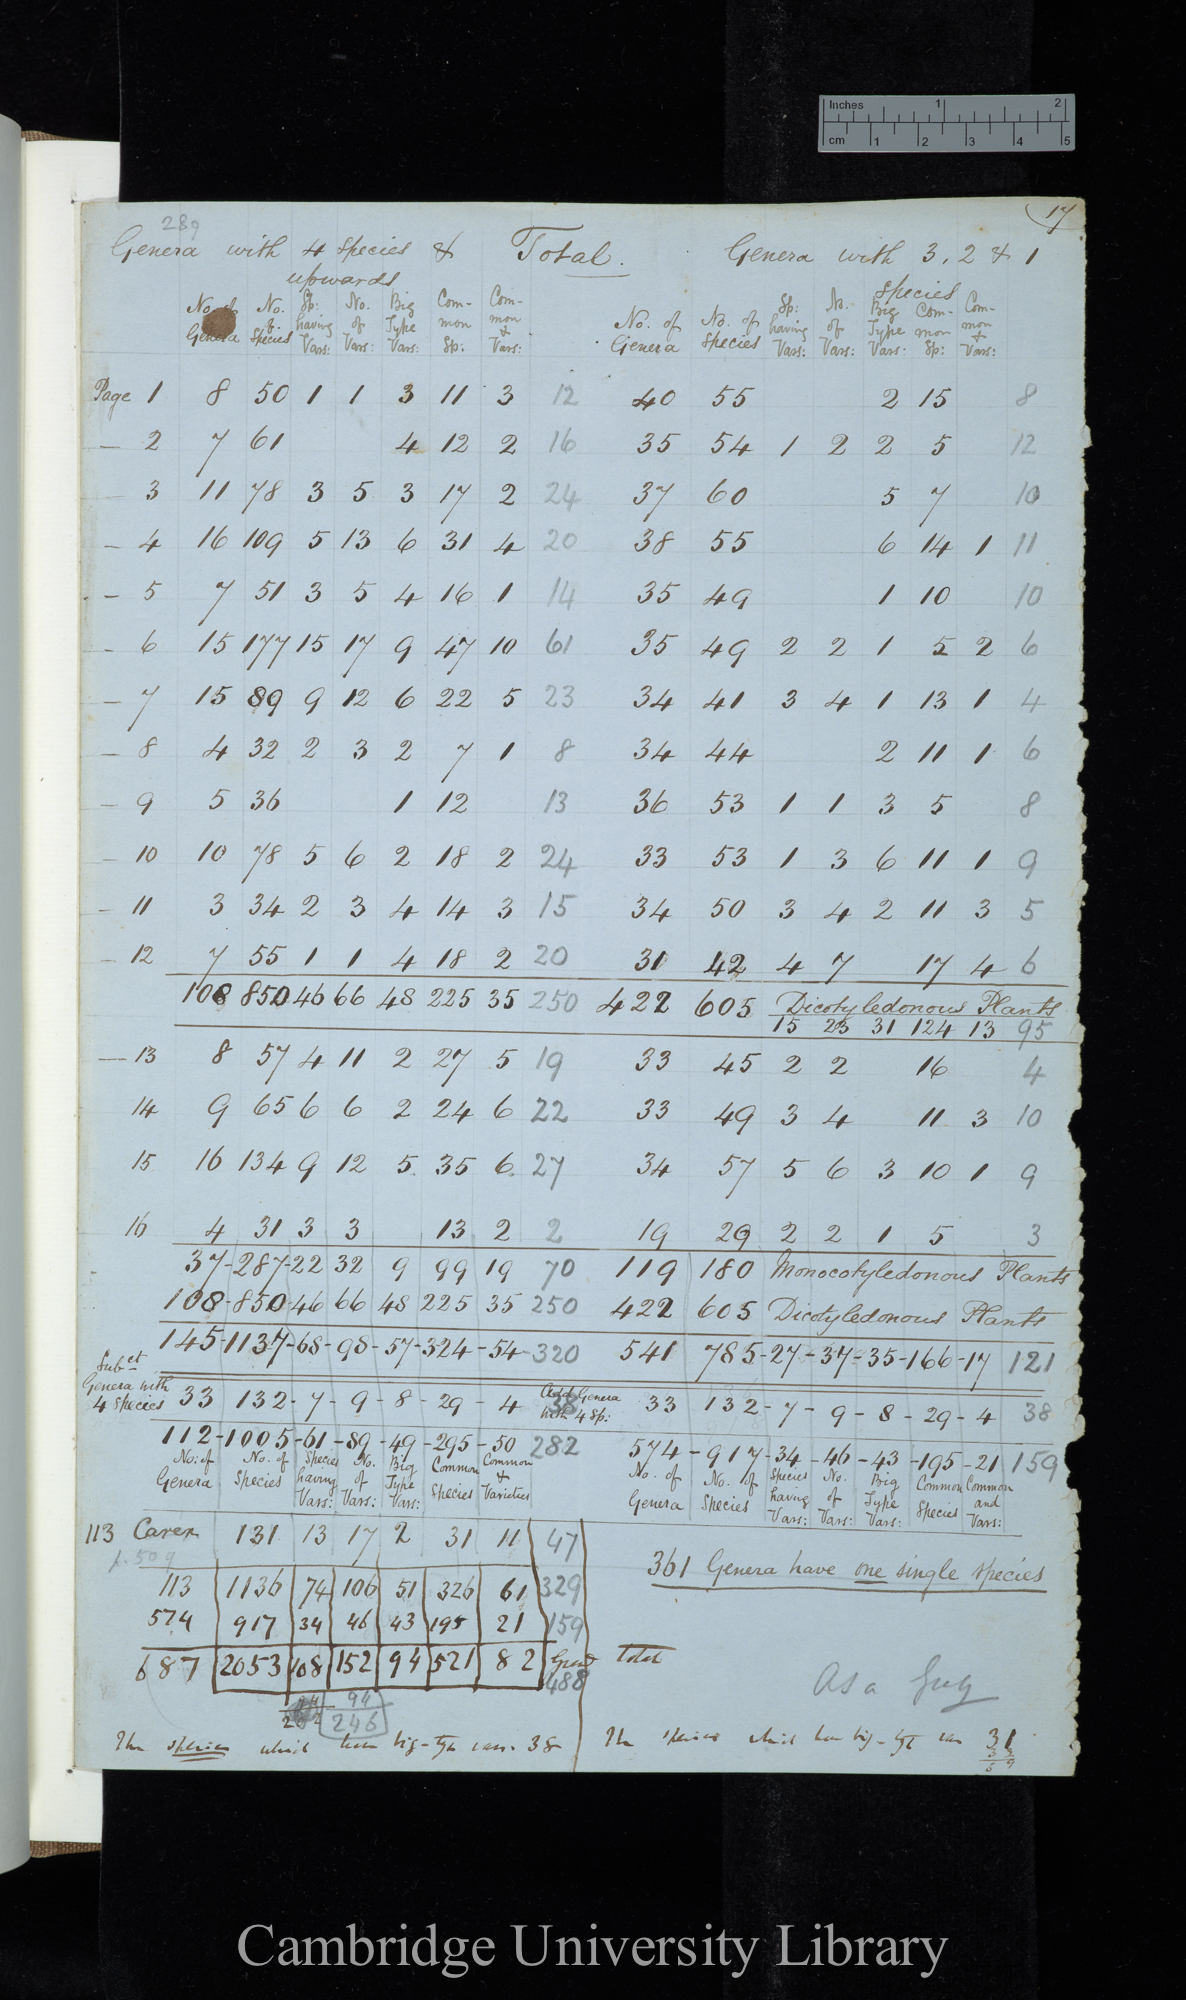 Inches 1 2
cm 1 2 3 4 5
17
289
Genera with 4 species & Total. Genera with 3, 2 & 1
upwards species
No. of Genera No. of Species Sp: having Vars: No. of Vars: Big Type Vars: Common Sp: Common & Vars: No. of Genera No. of Species Sp: having Vars: No. of Vars: Big Type Vars: Common Sp: Common & Vars:
Page 1 8 50 1 1 3 11 3 12 40 55 2 15 8
— 2 7 61 4 12 2 16 35 54 1 2 2 5 12
3 11 78 3 5 3 17 2 24 37 60 5 7 10
- 4 16 109 5 13 6 31 4 20 38 55 6 14 1 11
- 5 7 51 3 5 4 16 1 14 35 49 1 10 10
- 6 15 177 15 17 9 47 10 61 35 49 2 2 1 5 2 6
- 7 15 89 9 12 6 22 5 23 34 41 3 4 1 13 1 4
— 8 4 32 2 3 2 7 1 8 34 44 2 11 1 6
- 9 5 36 1 12 13 36 53 1 1 3 5 8
- 10 10 78 5 6 2 18 2 24 33 53 1 3 6 11 1 9
- 11 3 34 2 3 4 14 3 15 34 50 3 4 2 11 3 5
- 12 7 55 1 1 4 18 2 20 31 42 4 7 17 4 6
108 850 46 66 48 225 35 250 422 605 Dicotyledonous Plants
15 23 31 124 13 95
— 13 8 57 4 11 2 27 5 19 33 45 2 2 16 4
14 9 65 6 6 2 24 6 22 33 49 3 4 11 3 10
15 16 134 9 12 5 35 6 27 34 57 5 6 3 10 1 9
16 4 31 3 3 13 2 2 19 29 2 2 1 5 3
37-287-22 32 9 99 19 70 119 180 Monocotyledonous Plants
108-850-46 66 48 225 35 250 422 605 Dicotyledonous Plants
145-1137-68-98-57-324-54-320 541 785-27-37-35-166-17 121
Subct
Genera with
4 Species 33 132-7-9-8-29-4 38 Add Genera with 4 Sp: 33 132-7-9-8-29-4 38
112-1005-61-89-49-295-50 282 574-917-34-46-43-195-21 159
No: of Genera No. of Species Species having Vars: No. of Vars: Big Type Vars: Common Species Common & Varieties No. of Genera No. of Species Species having Vars: No. of Vars: Big Type Vars: Common Species Common and Vars:
113 Carex 131 13 17 2 31 11 47
p. 509
361 Genera have one single species
113 1136 74 106 51 326 61 329
574 917 34 46 43 195 21 159
687 2053 108 152 94 521 82 Grand total
488
94
246
As a Gray
The species which have big-type vars. 38
The species which have big-type vars 31
Cambridge University Library